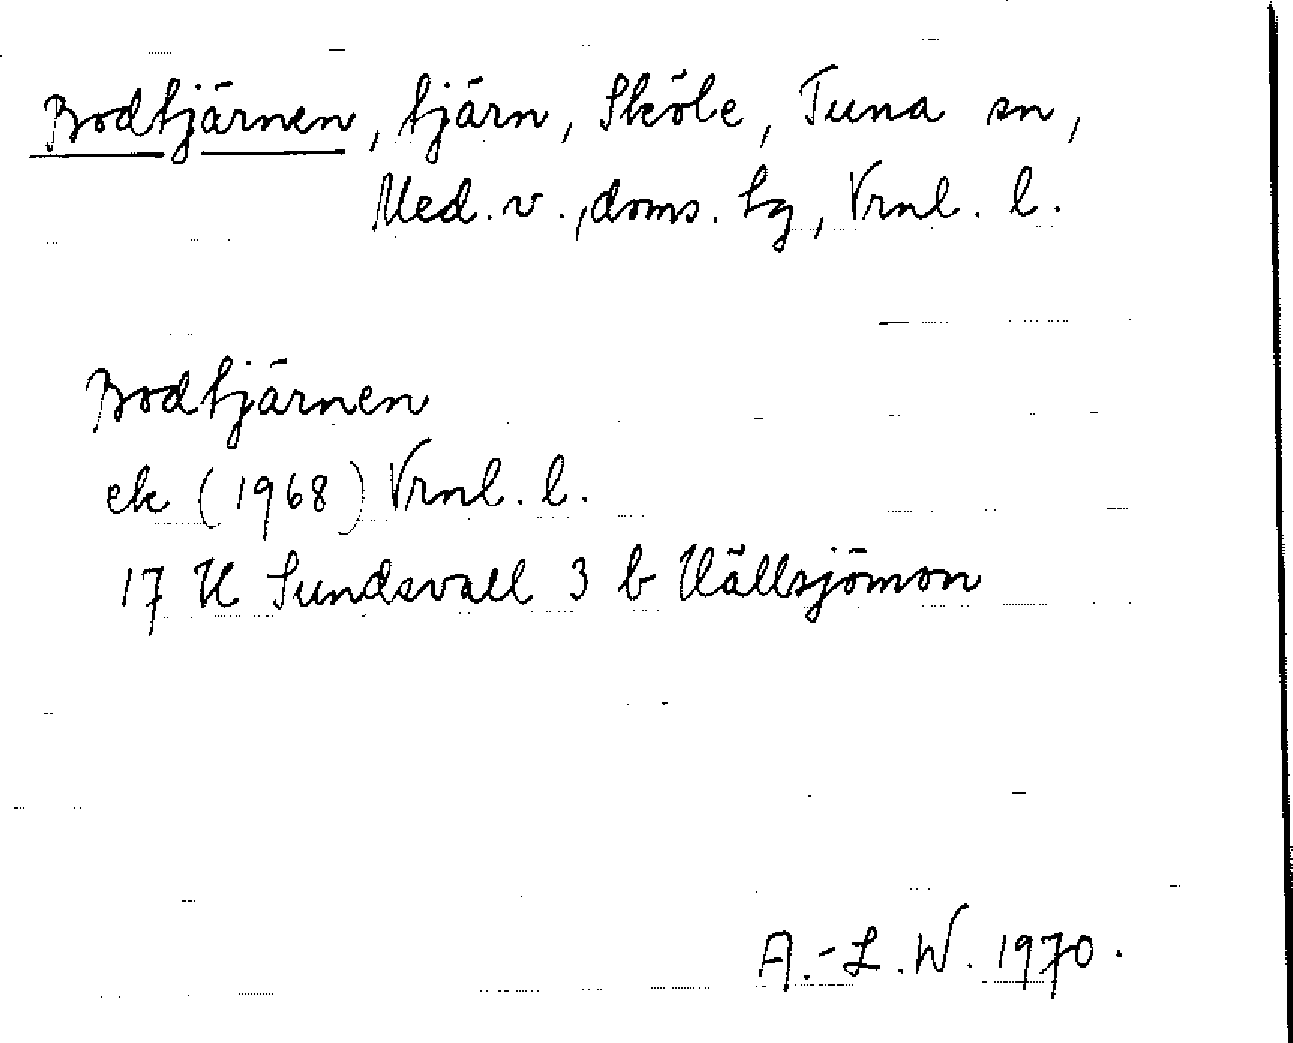 Bodtjärnen, tjärn, Sköle, Tuna sn,
Med. v., doms. hg, Vrnl. l.
Bodtjärnen
ek (1968) Vrnl. l.
17 H Sundsvall 3 b Hällsjömon
A.-L.W. 1970.